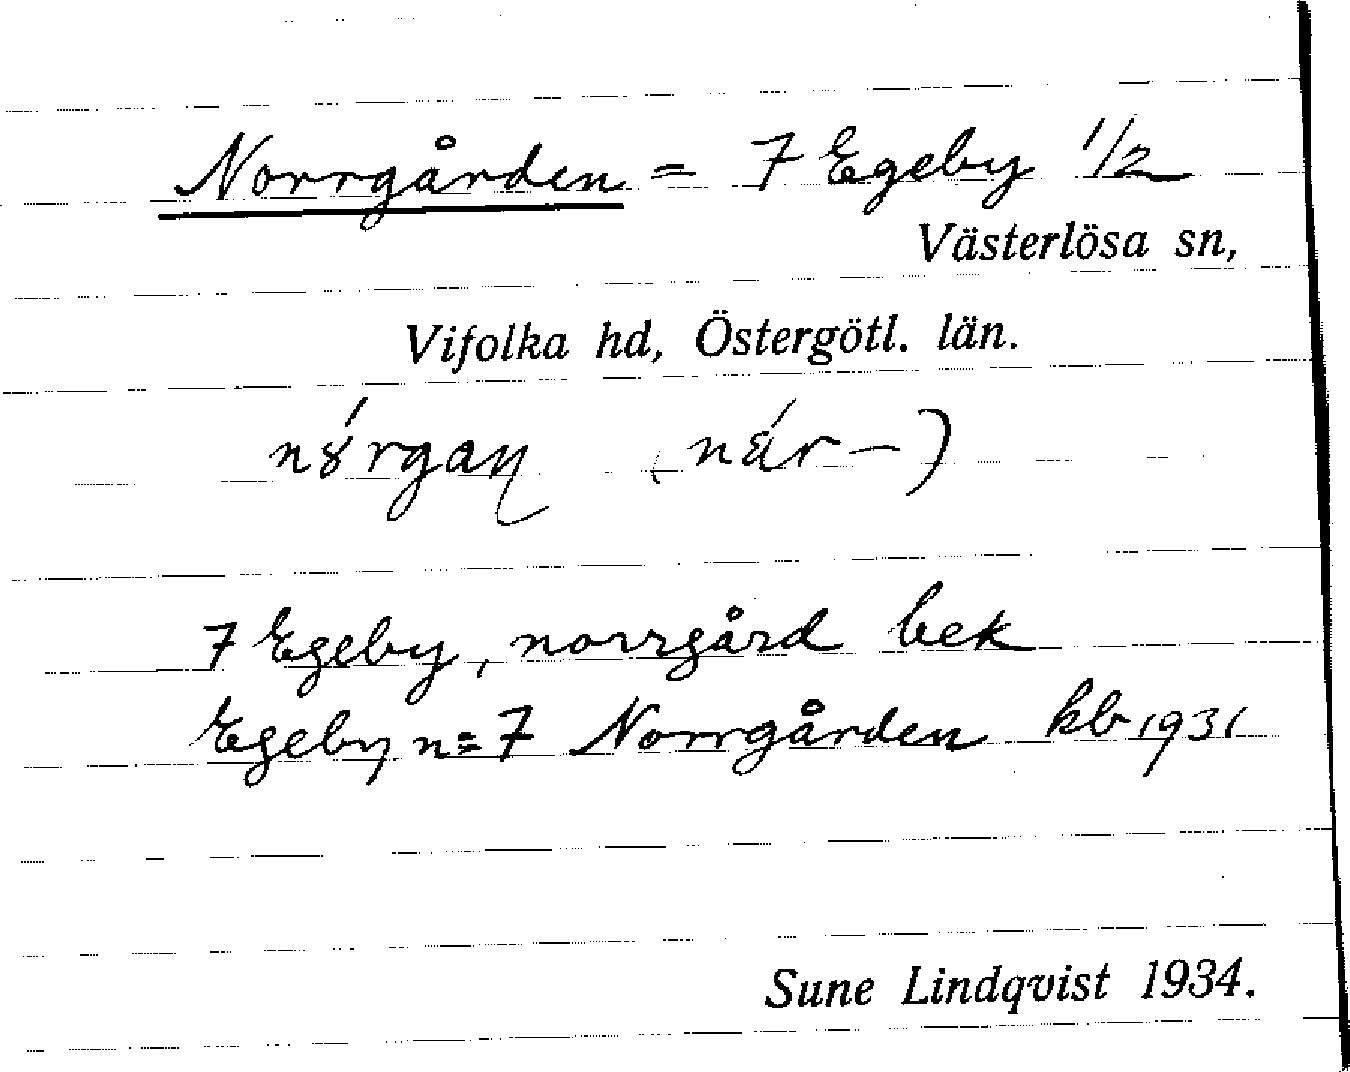 Norrgården = 7 Egeby 1/2
Västerlösa sn,
Vifolka hd, Östergötl. län.
(nár-)
7 Egeby, norrgård bek
Egeby n=7 Norrgården kb 1931
Sune Lindqvist 1934.